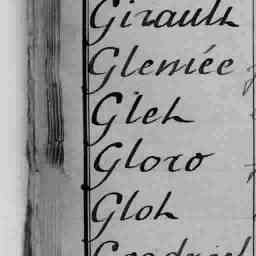 Girault
Glemée
Gleh
Gloro
Gloh